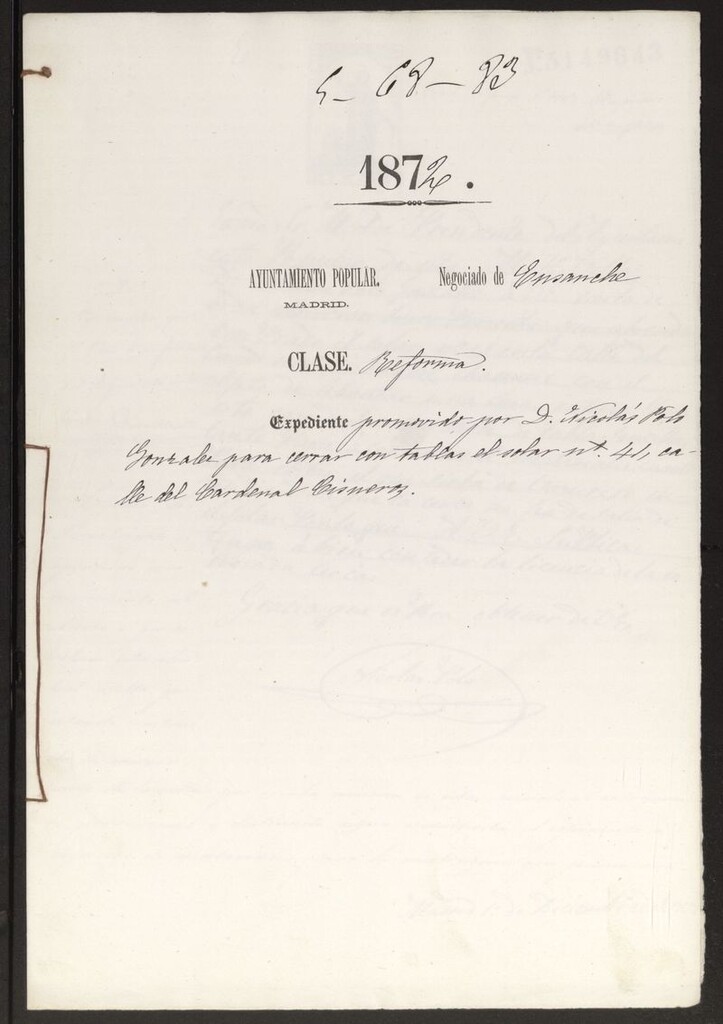 5 - 68 - 83
1872.
AYUNTAMIENTO POPULAR. Negociado de Ensanche
MADRID.
CLASE. Reforma.
Expediente promovido por D. Nicolás Polo
Gonzalez para cerrar con tablas el solar nº. 41, ca-
lle del Cardenal Cisneros.